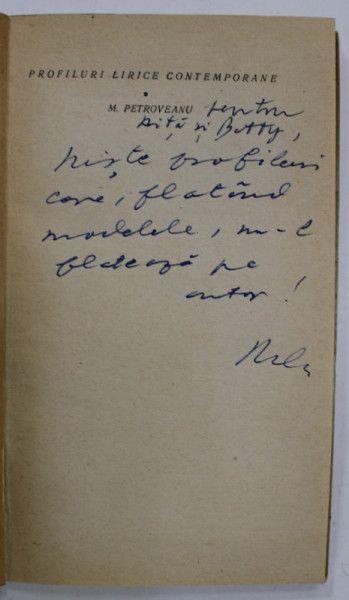 PROFILURI LIRICE CONTEMPORANE
M. PETROVEANU pentru
Riță și Betty,
niște profiluri
care, flatând
modelele, nu-l
flatează pe
autor!